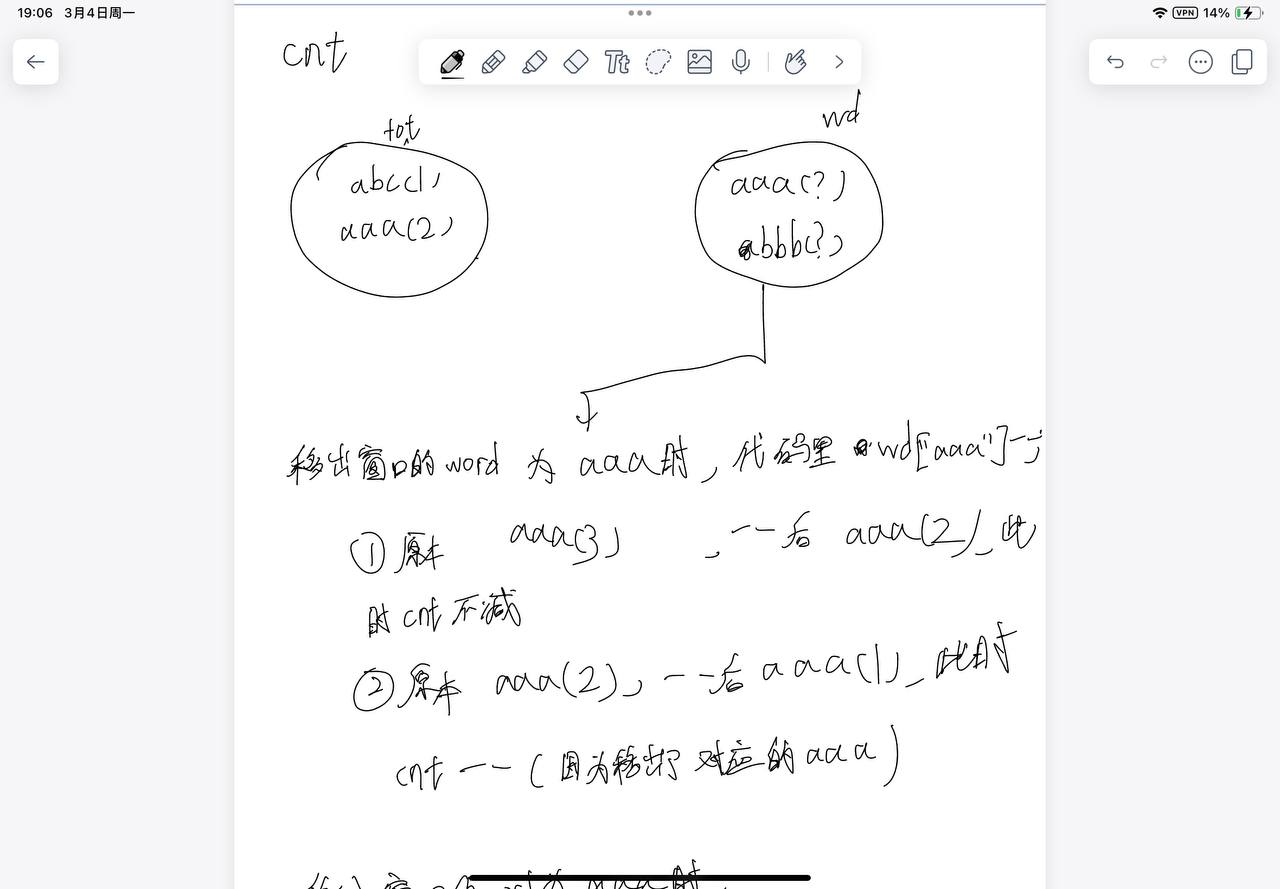 19:06 3月4日周一
VPN 14%
cnt
Tt
tot
wd
abc(1)
aaa(2)
aaa(?)
abbb(?)
移出窗口的word 为 aaa时，代码里 wd["aaa"]--;
① 原本 aaa(3) ，--后 aaa(2)，此
时cnt不减
② 原本 aaa(2)，--后 aaa(1)，此时
cnt -- (因为移出了对应的aaa)